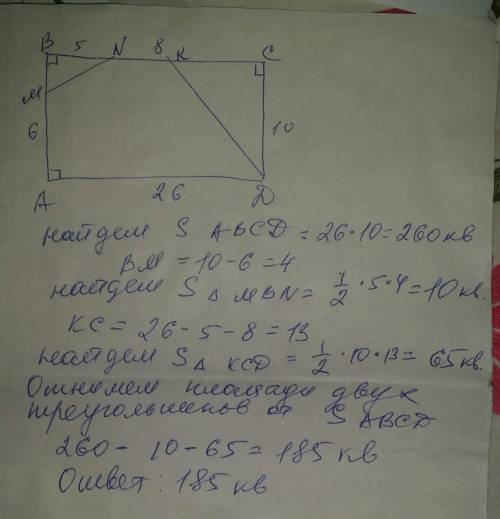 B 5 N 8 K C
M
6 10
A 26 D
найдем S ABCD = 26·10 = 260 кв
BM = 10-6 = 4
найдем S△ MBN = 1/2 · 5·4 = 10 кв.
KC = 26-5-8 = 13
найдем S△ KCD = 1/2 · 10·13 = 65 кв.
Отнимем площади двух
треугольников от S ABCD
260 - 10 - 65 = 185 кв
Ответ: 185 кв